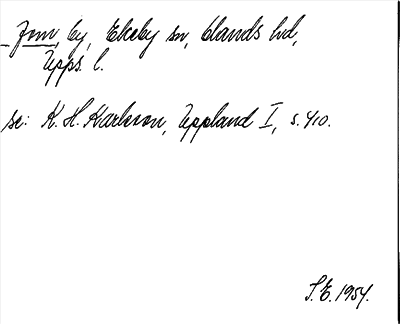 Jom, by, Ekeby sn, Olands hd,
Upps. l.
se: K. H. Karlsson, Uppland I, s. 410.
S. E. 1954.